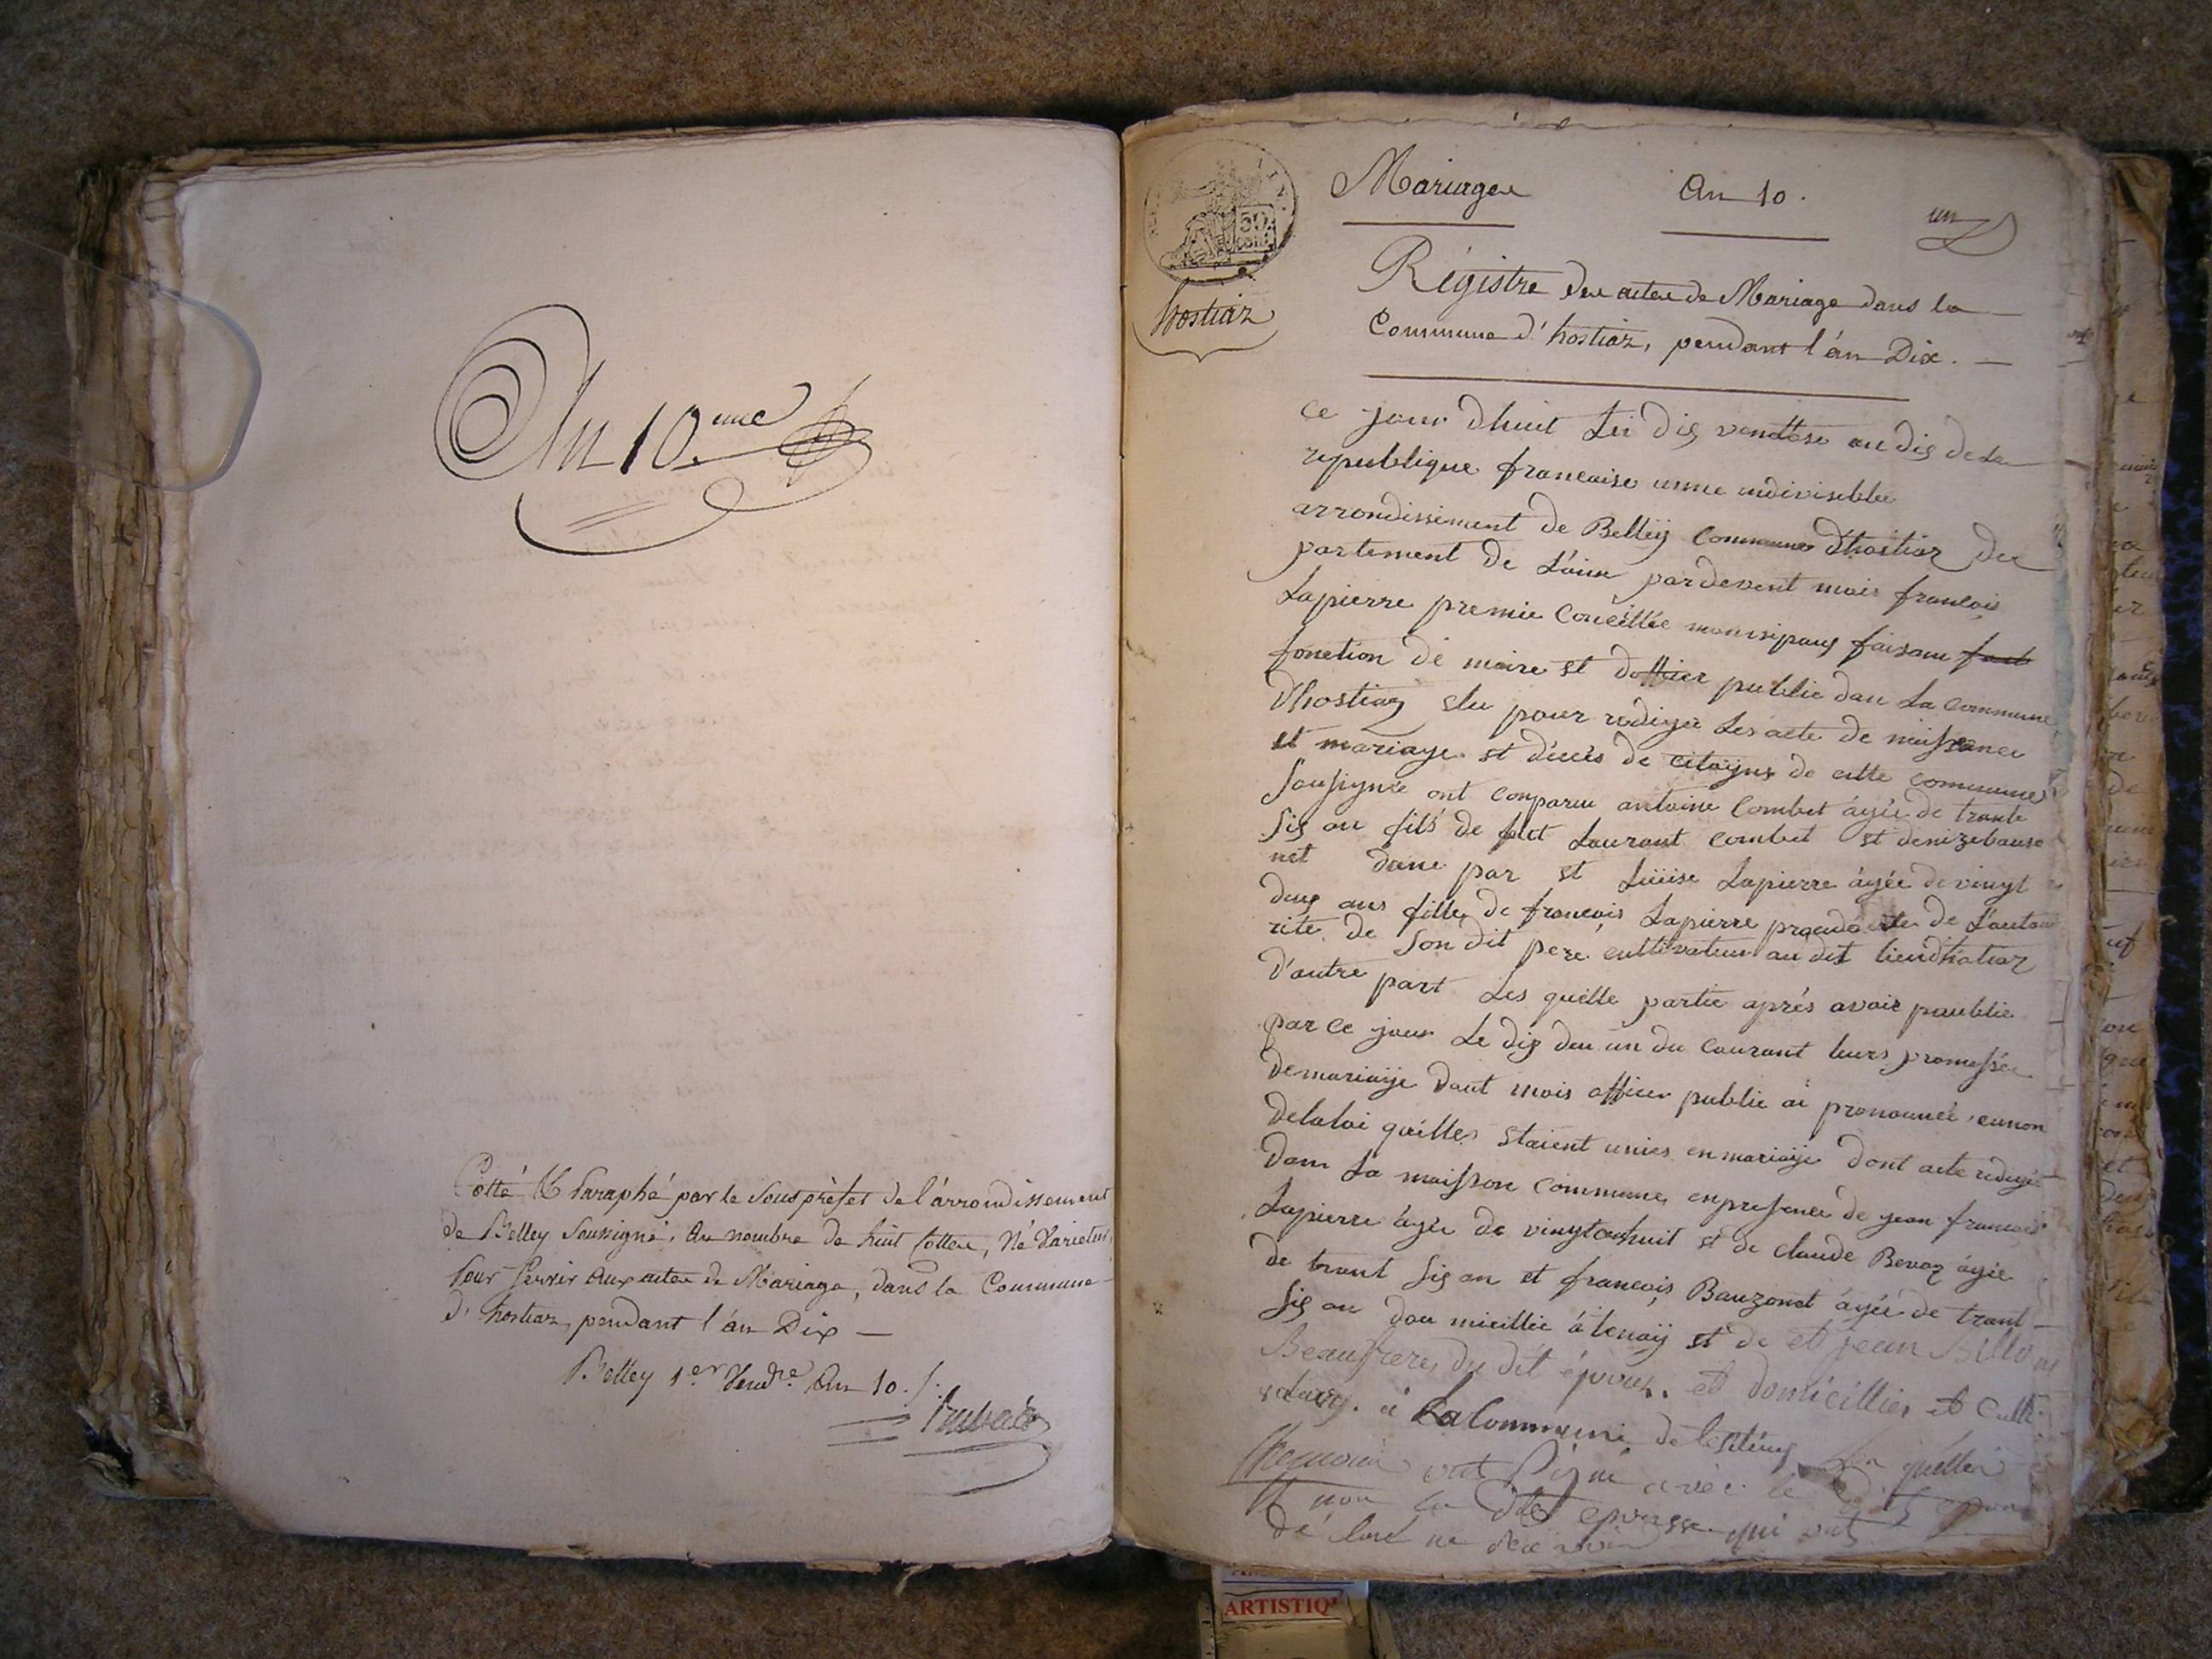 An 10.eme
Cotté & Paraphé par le Sousprèfet de l'arrondissement
de Belley Soussigné, Au nombre de huit Cottes, Né Varietur,
Pour Servir Aux actes de Mariage, dans la Commune
d'hostiaz, pendant l'án Dix —
Belley 1er Vendre An 10 ./.
50
CENT.
hostiaz
Mariages An 10.
un
Régistre des actes de Mariage dans la
Commune d'hostiaz, pendant l'án Dix. —
ce jour dhuit Le dis vendose an dis de la
republique francaise unne indivisible
arrondissiment de Belley Commune dhostiaz de
partement de L'ain pardevent mois francois
Lapierre premie Conseillée monisipaux faisant
fonction de maire et doffiier publie dan La commune
dhostiaz elu pour rediger Les acte de naissance
et mariage et décès de citoÿns de cette commune
sousignée ont conparu antoine Combet ágée de trante
sis an fils de fut Laurant combet et denize bauzo
net dune par et Luïise Lapierre ágée de vingt
deus ans fille de francois Lapierre de L'auto
rite de son dit pere cultivateur au dit lieu dhotiaz
d'autre part Les quelle partie aprés avoir paublie
par ce jour Le dis du courant leurs promessée
de mariaije dont mois officier publie ai pronouncé au non
de la loi quélles etaient unies en mariaije dont acte redigé
dans La maisson commune en presence de jean francois
Lapierre ágée de vingt et huit et de claude Bevoz ágée
de trant sis an et francois Bauzonet ágée de trant
sis an dou micillie á tenaÿ et de et jean Billon
Beaufreres du dit époux. et domicilliés et culti
vateurs. a La Commune de les quelles
ont signé avec le dit epoux
non la ditte epousse qui ont
dé claré ne
ARTISTIQ